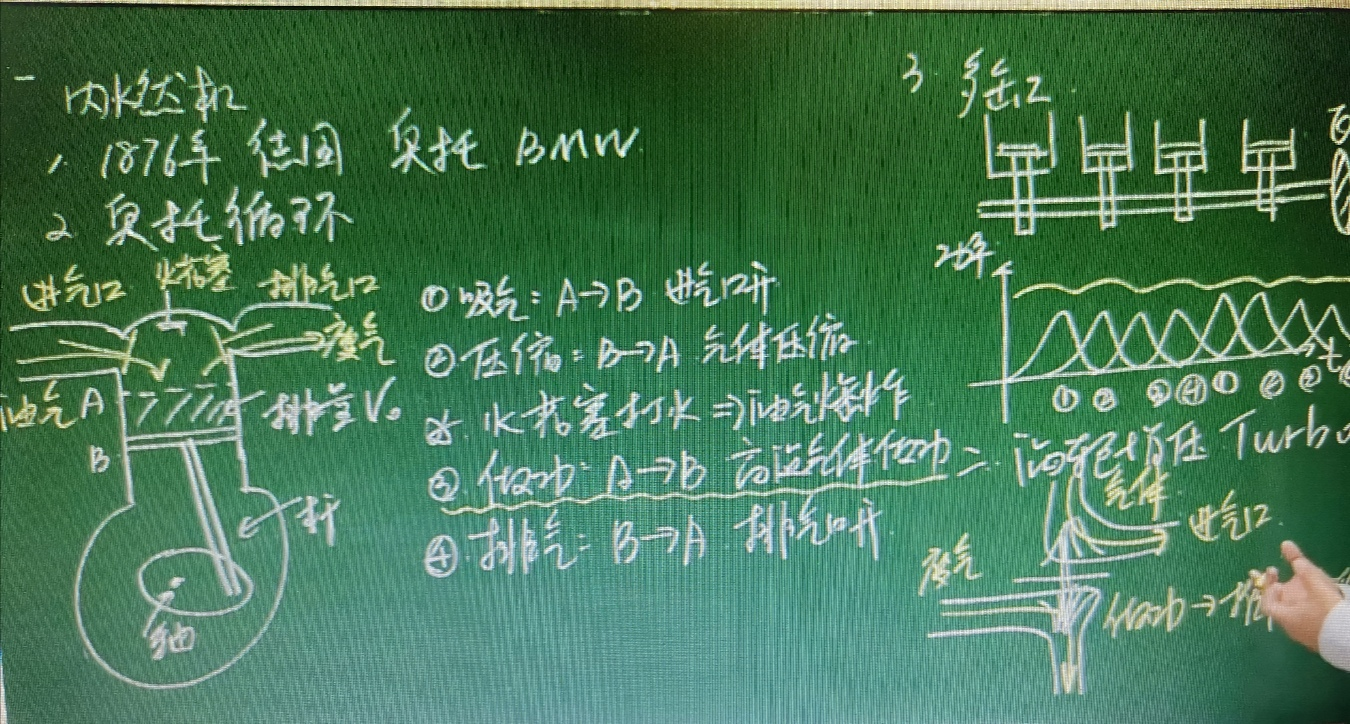 一 内燃机
1. 1876年 德国 奥托 BMW
2. 奥托循环
进气口 火花塞 排气口
废气
油气 A
排量V₀
B
杆
轴
① 吸气：A→B 进气口开
② 压缩：B→A 气体压缩
☆. 火花塞打火⇒油气爆炸
③. 做功：A→B 高温气体做功
④. 排气：B→A 排气口开
3. 多缸
功率
t
① ② ③ ④ ① ② ③
二. 涡轮增压 Turbo
气体
进气口
废气
做功→排